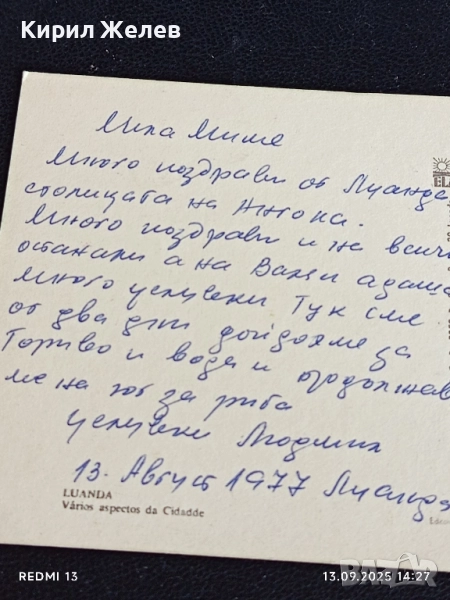 Кирил Желев
Мила Миме
Много поздрави от Луанда
столицата на Ангола.
Много поздрави и на всич
остани а на Ваня и даш
много целувки Тук сме
от два дни дойдохме за
Гориво и вода и продължав
ме на юг за риба
целувки Людмил
13. Август 1977 Луанда
LUANDA
Vários aspectos da Cidadde
EL
BAZAR
REDMI 13
13.09.2025 14:27